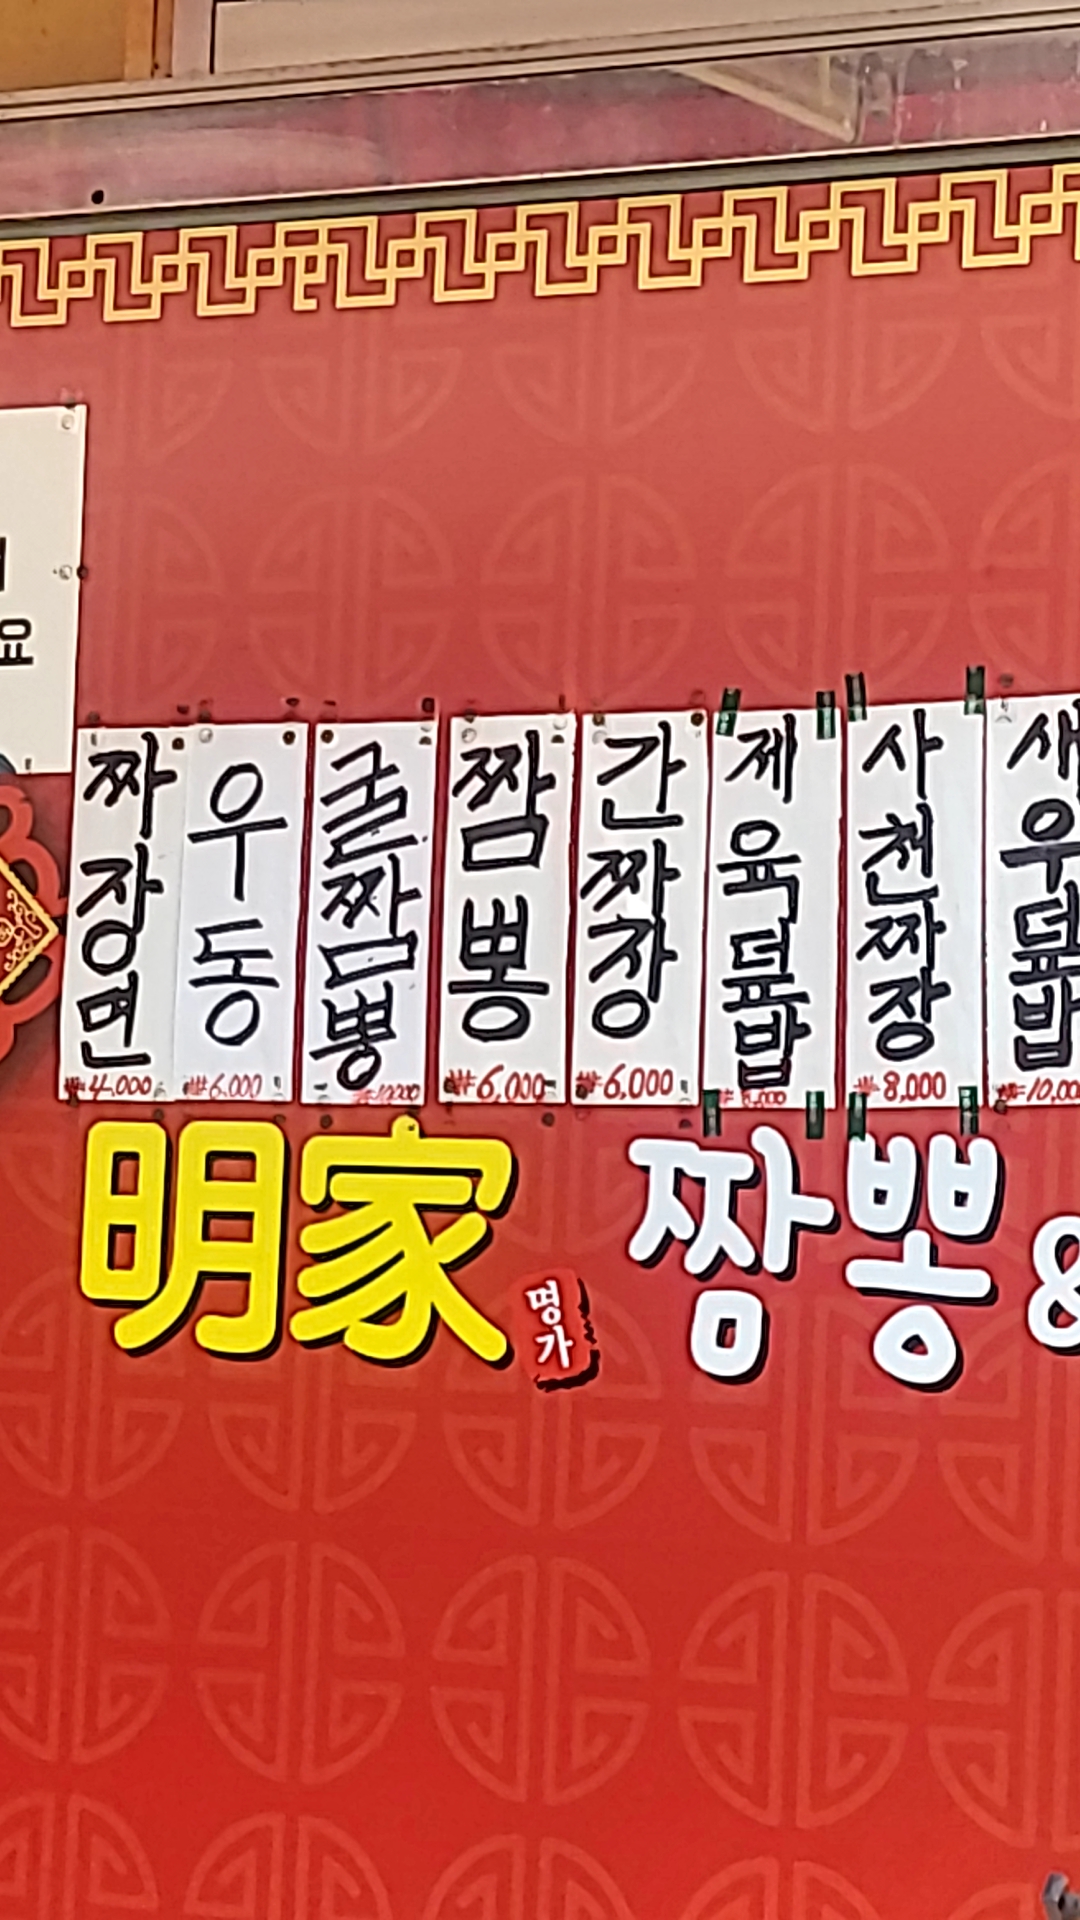 요
짜장면
₩4,000
우동
₩6,000
굴짬뽕
₩10,000
짬뽕
₩6,000
간짜장
₩6,000
제육덮밥
사천짜장
₩8,000
새우덮밥
₩10,000
明家
명가
짬뽕 &